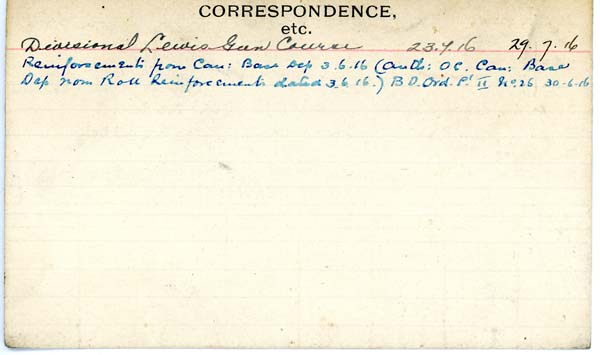 CORRESPONDENCE,
etc.
Divisional Lewis Gun Course 23.7.16 29.7.16
Reinforcements from Can: Base Dep 3.6.16 (auth: OC. Can: Base
Dep nom Roll Reinforcements dated 3.6.16.) B D. Ord. Pt II No. 26 30-6-16